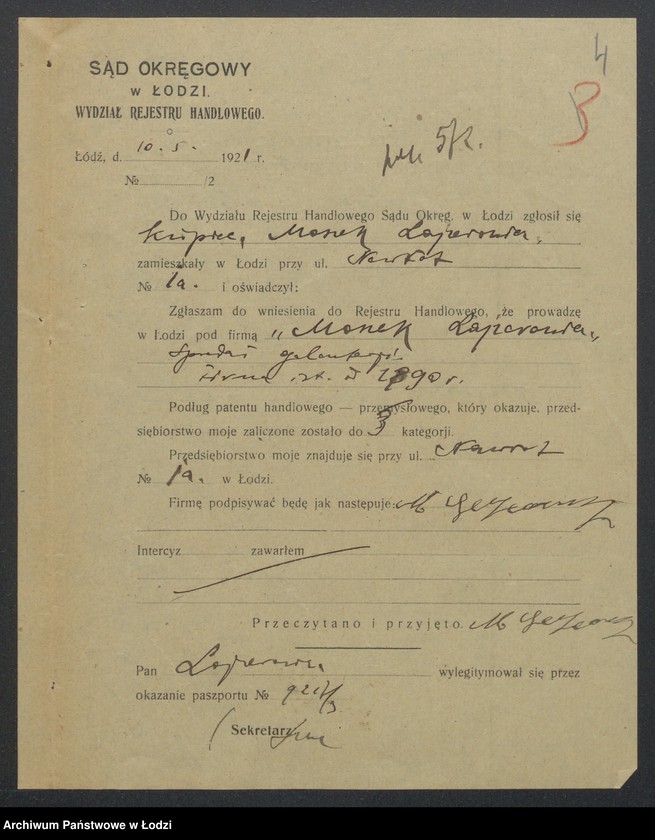 4
3
SĄD OKRĘGOWY
w ŁODZI.
WYDZIAŁ REJESTRU HANDLOWEGO.
Łódź, d. 10. 5. 1921 r.
№ /2
Do Wydziału Rejestru Handlowego Sądu Okręg. w Łodzi zgłosił się
kupiec, Monek
zamieszkały w Łodzi przy ul. Nawrot
№ 1a. i oświadczył:
Zgłaszam do wniesienia do Rejestru Handlowego, że prowadzę
w Łodzi pod firmą „Monek
Sprzedaż galanterji
firma ist. od 1890 r.
Podług patentu handlowego — przemysłowego, który okazuje, przed-
siębiorstwo moje zaliczone zostało do 3 kategorji.
Przedsiębiorstwo moje znajduje się przy ul. Nawrot
№ 1a. w Łodzi.
Firmę podpisywać będę jak następuje: M
Intercyz zawarłem
Przeczytano i przyjęto. M
Pan wylegitymował się przez
okazanie paszportu №
Sekretarz
Archiwum Państwowe w Łodzi